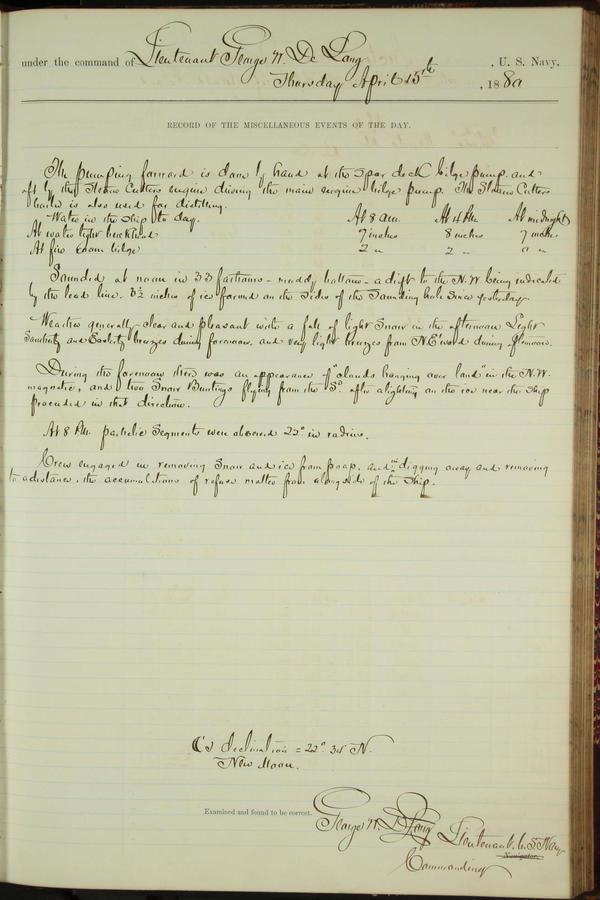 under the command of Lieutenant George W. De Long, U. S. Navy.
Thursday April 15th, 1880
RECORD OF THE MISCELLANEOUS EVENTS OF THE DAY.
The pumping forward is done by hand at the Spar deck bilge pump. and
aft by the Steam Cutters engine driving the main engine bilge pump. The Steam Cutters
boiler is also used for distilling.
Water in the Ship to day. At 8 am. At 4 Pm. At midnight
At water tight bulkhead 7 inches 8 inches 7 inches
At fire room bilge 2 " 2 " "
Sounded at noon in 33 fathoms - muddy bottom - a drift to the N.W. being indicated
by the lead line. 3½ inches of ice formed on the sides of the Sounding hole since yesterday.
Weather generally clear and pleasant with a fall of light Snow in the afternoon Light
Southerly and Easterly breezes during forenoon. and very light breezes from N.E'ward during afternoon.
During the forenoon there was an appearance of "clouds hanging over land" in the N.W.
magnetic, and two Snow Buntings flying from the Sd. after alighting on the ice near the Ship
proceeded in that direction.
At 8 Pm. parhelic Segments were observed 22° in radius.
Crew engaged in removing Snow and ice from poop. and in digging away and removing
to a distance. the accumulations of refuse matter from alongside of the Ship.
☾'s declination = 22° N.
New Moon.
Examined and found to be correct.
George W. De Long Lieutenant. U.S. Navy
Navigator.
Commanding